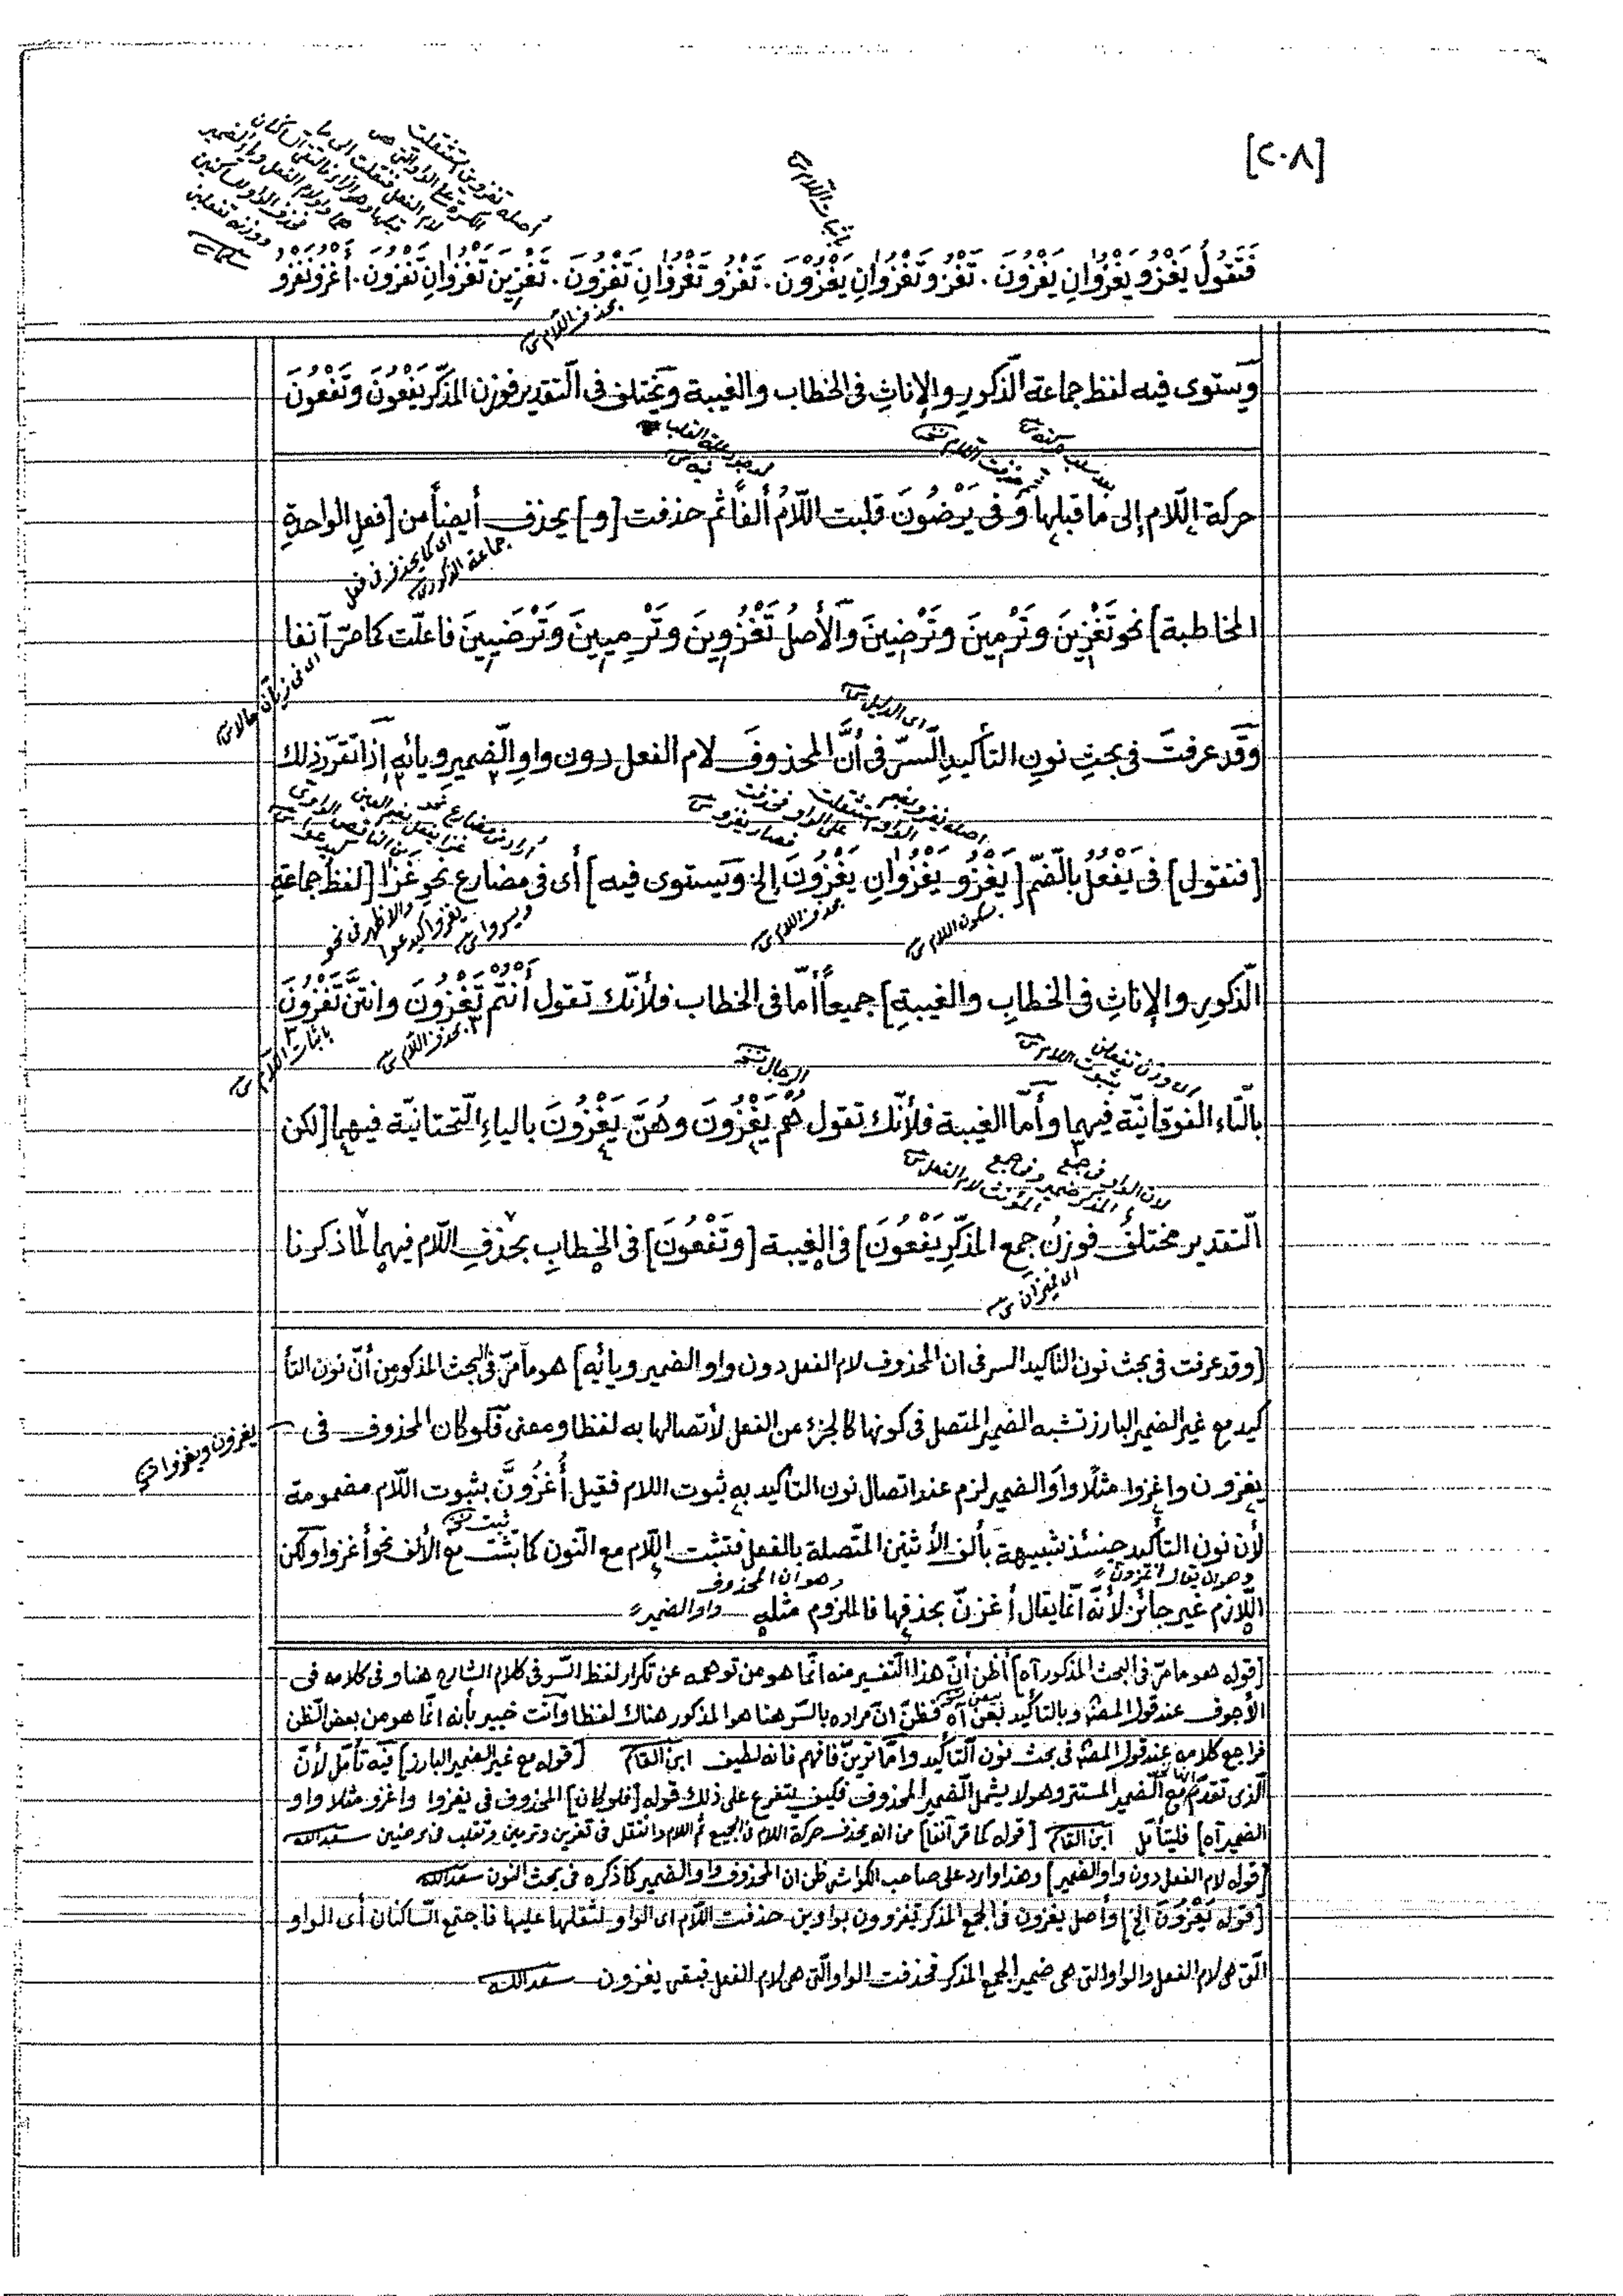 [٢٠٨]
فَتَقُولُ يَغْزُو يَغْزُوَانِ يَغْزُونَ. تَغْزُو تَغْزُوَانِ يَغْزُونَ. تَغْزُو تَغْزُوَانِ تَغْزُونَ. تَغْزِينَ تَغْزُوَانِ تَغْزُونَ. أَغْزُو نَغْزُو
بحذف اللّام
ويَستوى فيه لفظ جماعة الذّكورِ والإناثِ فى الخطاب والغيبة ويَختلف فى التّقدير فوزن المذكّر يَفْعُونَ وتَفْعُونَ
حركة اللّام إلى ما قبلها وفى يَرْضُونَ قلبت اللّامُ ألفاً ثم حذفت [و] يحذف أيضاً من [فعلِ الواحدةِ
اى كما يحذف فى فعل
جماعة الذكور
المخاطبة] نحو تَغْزِينَ وتَرْمِينَ وتَرْضِينَ والأصلُ تَغْزُوِينَ وتَرْمِيِينَ وتَرْضَيِينَ فاعلّت كما مرّ آنفا
اى الدليل
وقَد عرفتَ فى بحثِ نونِ التأكيدِ السّرّ فى أنَّ المحذوفَ لام الفعل دون واوِ الضّميرِ ويائهِ إذا تقرّر ذلك
[فتقول] فى يَفْعُلُ بالضّمّ [يَغْزُو يَغْزُوَانِ يَغْزُونَ إلخ ويَستوى فيه] أى فى مضارع نحوِ غَزَا [لفظُ جماعةِ
بسكون اللام
بحذف اللام
الذّكورِ والإناثِ فى الخطابِ والغيبةِ] جميعاً أمّا فى الخطاب فلأنّك تقول أَنْتُمْ تَغْزُونَ وانتنَّ تَغْزُونَ
بحذف اللّام
باثبات اللّام
اى وزن تفعلن
بثبوت اللام
الرجال نسخه
بالتّاء الفوقانيّة فيهما وأمّا الغيبة فلأنّك تقول هُمْ يَغْزُونَ وهُنَّ يَغْزُونَ بالياءِ التّحتانيّة فيهما [لكن
لان الواو فى جمع
المذكر ضمير وفى جمع
المؤنث لام الفعل
التّقدير مختلفٌ فوزنُ جمع المذكّرِ يَفْعُونَ] فى الغيبة [وتَفْعُونَ] فى الخطابِ بحذفِ اللّام فيهما لما ذكرنا
[وقد عرفت فى بحث نون التاكيد السر فى ان المحذوف لام الفعل دون واو الضمير ويائه] هو ما مرّ فى البحث المذكور من أنّ نون التأ
كيد مع غير الضمير البارز تشبه الضمير المتصل فى كونها كالجزء من الفعل لأتصالها به لفظا ومعنى فلو كان المحذوف فى
يغزون ويغزوا
يغزون واغزوا مثلًا واوَ الضمير لزم عند اتصال نون التأكيد به ثبوت اللام فقيل أُغزُوَنَّ بثبوت اللّام مضمومة
ثبت نسخه
لأن نون التأكيد حينئذ شبيهة بألف الأثنين المتّصلة بالفعل فتثبت اللّام مع النّون كما يثبت مع الألف نحو أغزوا ولكن
وهو ان المحذوف
اللّازم غير جائز لأنّه انّما يقال أغزنّ بحذفها فالملزوم مثله
واو الضمير
[قوله هو ما مرّ فى البحث المذكور آه] أظن أنّ هذا التفسير منه انّما هو من توهمه عن تكرار لفظ السّر فى كلام الشارح هنا وفى كلامه فى
الأجوف عند قول المصنّف وبالتأكيد بعن آه فظنّ انّ مراده بالسّر هنا هو المذكور هناك لفظا وأنت خبير بأنه انّما هو من بعض الظن
فراجع كلامه عند قول المصنّف فى بحث نون التأكيد وامّا ترينّ فافهم فانه لطيف ابن القاسم [قوله مع غير الضمير البارز] فيه تأمّل لأنّ
الّذى تقدّم مع الضمير المستتر وهو لا يشمل الضمير المحذوف فكيف يتفرع على ذلك قوله [فلو كان] المحذوف فى يغزوا واغزو مثلا واو
الضمير آه] فليتأمّل ابن القاسم [قوله كما مرّ آنفا] من انه يحذف حركة اللام فى الجميع ثم اللام وانتقل فى تغزين وترمين وتقلب فى ترضين سعد الله
[قوله لام الفعل دون واو الضمير] وهذا وارد على صاحب الكواشى ظن ان المحذوف واو الضمير كما ذكره فى بحث النون سعد الله
[قوله يَغْزُونَ الخ] وأصل يغزون فى الجمع المذكر يغزوون بواوين حذفت اللّام اى الواو لثقلها عليها فاجتمع السّاكنان أى الواو
الّتى هى لام الفعل والواو التى هى ضمير الجمع المذكر فحذفت الواو الّتى هى لام الفعل فبقى يغزون سعد الله